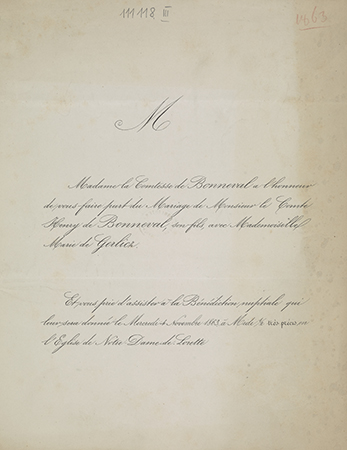 111118 III
1863
M
Madame la Comtesse de Bonneval a l'honneur
de vous faire part du Mariage de Monsieur le Comte
Henry de Bonneval, son fils, avec Mademoiselle
Marie de Gerlicz
Et vous prie d'assister à la Bénédiction nuptiale qui
leur sera donnée le Mercredi 4 Novembre 1863, à Midi très précis, en
l'Eglise de Notre Dame de Lorette